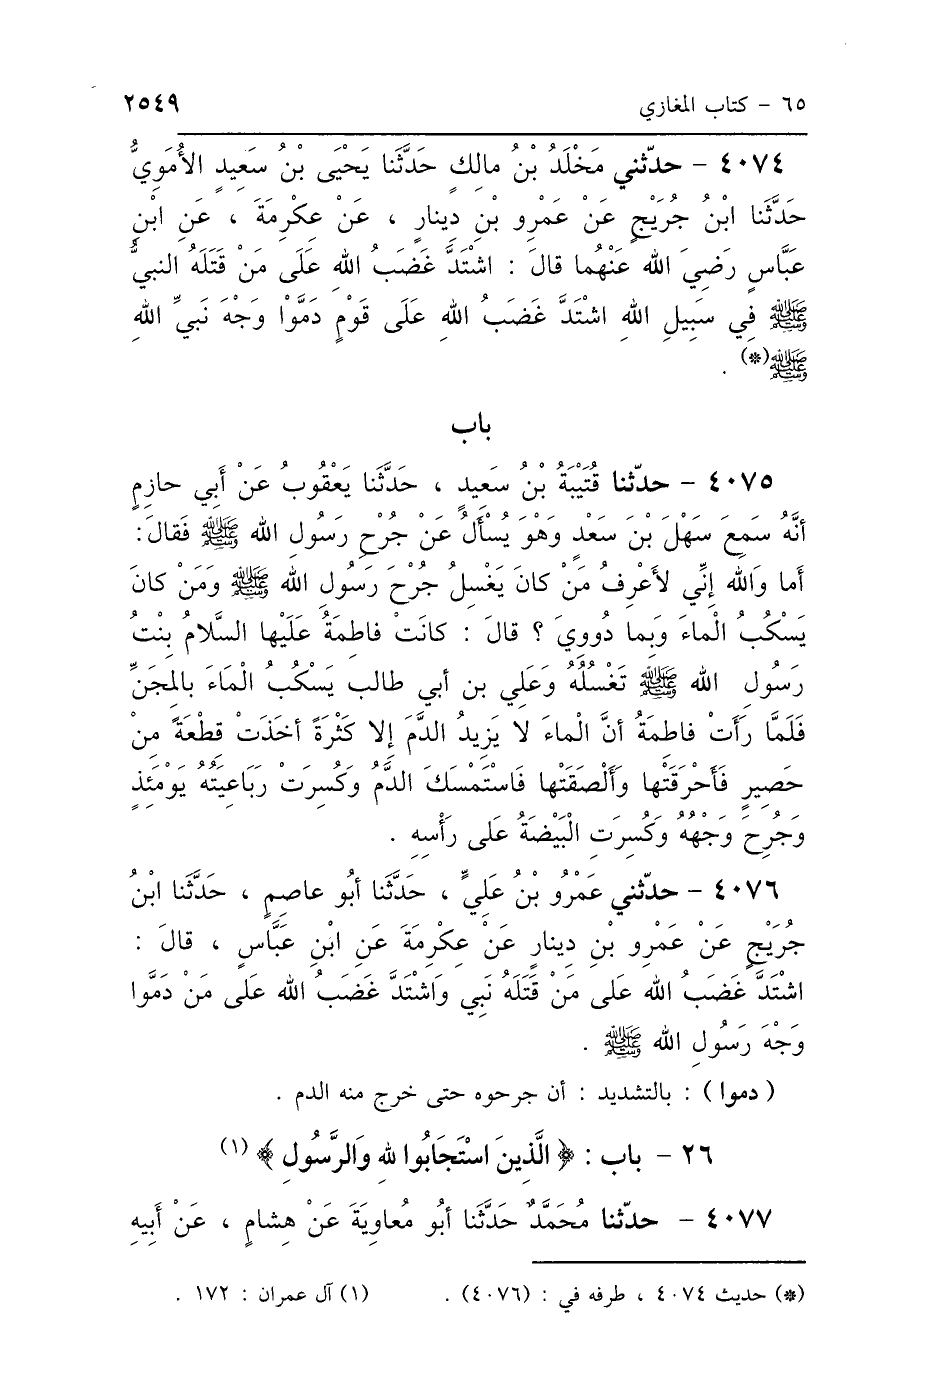 ٦٥ - كتاب المغازي ٢٥٤٩
٤٠٧٤ - حدّثني مَخْلَدُ بْنُ مالِكٍ حَدَّثَنا يَحْيَى بْنُ سَعِيدٍ الأُمَوِيُّ
حَدَّثَنا ابْنُ جُرَيْجٍ عَنْ عَمْرِو بْنِ دِينارٍ ، عَنْ عِكْرِمَةَ ، عَنِ ابْنِ
عَبَّاسٍ رَضِيَ الله عَنْهُما قالَ : اشْتَدَّ غَضَبُ اللهِ عَلَى مَنْ قَتَلَهُ النبيُّ
ﷺ فِي سَبِيلِ اللهِ اشْتَدَّ غَضَبُ اللهِ عَلَى قَوْمٍ دَمَّوْا وَجْهَ نَبيِّ اللهِ
ﷺ(*) .
باب
٤٠٧٥ - حدّثنا قُتَيْبَةُ بْنُ سَعِيدٍ ، حَدَّثَنا يَعْقُوبُ عَنْ أبي حازِمٍ
أنَّهُ سَمِعَ سَهْلَ بْنَ سَعْدٍ وَهْوَ يُسْأَلُ عَنْ جُرْحِ رَسُولِ الله ﷺ فَقالَ:
أما وَالله إنِّي لأَعْرِفُ مَنْ كانَ يَغْسِلُ جُرْحَ رَسُولِ الله ﷺ وَمَنْ كانَ
يَسْكُبُ الْماءَ وَبِما دُووِيَ ؟ قالَ : كانَتْ فاطِمَةُ عَلَيْها السَّلامُ بِنْتُ
رَسُولِ الله ﷺ تَغْسِلُهُ وَعَلي بن أبي طالب يَسْكُبُ الْماءَ بِالمِجَنِّ
فَلَمَّا رَأَتْ فاطِمَةُ أنَّ الْماءَ لا يَزِيدُ الدَّمَ إلا كَثْرَةً أخَذَتْ قِطْعَةً مِنْ
حَصِيرٍ فَأَحْرَقَتْها وَأَلْصَقَتْها فَاسْتَمْسَكَ الدَّمُ وَكُسِرَتْ رَبَاعِيَتُهُ يَوْمَئِذٍ
وَجُرِحَ وَجْهُهُ وَكُسِرَتِ الْبَيْضَةُ عَلى رَأْسِهِ .
٤٠٧٦ - حدّثني عَمْرُو بْنُ عَلِيٍّ ، حَدَّثَنا أبُو عاصِمٍ ، حَدَّثَنا ابْنُ
جُرَيْجٍ عَنْ عَمْرِو بْنِ دِينارٍ عَنْ عِكْرِمَةَ عَنِ ابْنِ عَبَّاسٍ ، قالَ :
اشْتَدَّ غَضَبُ الله عَلى مَنْ قَتَلَهُ نَبِي وَاشْتَدَّ غَضَبُ الله عَلى مَنْ دَمَّوا
وَجْهَ رَسُولِ الله ﷺ .
( دموا ) : بالتشديد : أن جرحوه حتى خرج منه الدم .
٢٦ - باب : ﴿ الَّذِينَ اسْتَجَابُوا للهِ وَالرَّسُولِ ﴾ (١)
٤٠٧٧ - حدّثنا مُحَمَّدٌ حَدَّثَنا أبُو مُعاوِيَةَ عَنْ هِشامٍ ، عَنْ أَبِيهِ
(*) حديث ٤٠٧٤ ، طرفه في : (٤٠٧٦) . (١) آل عمران : ١٧٢ .